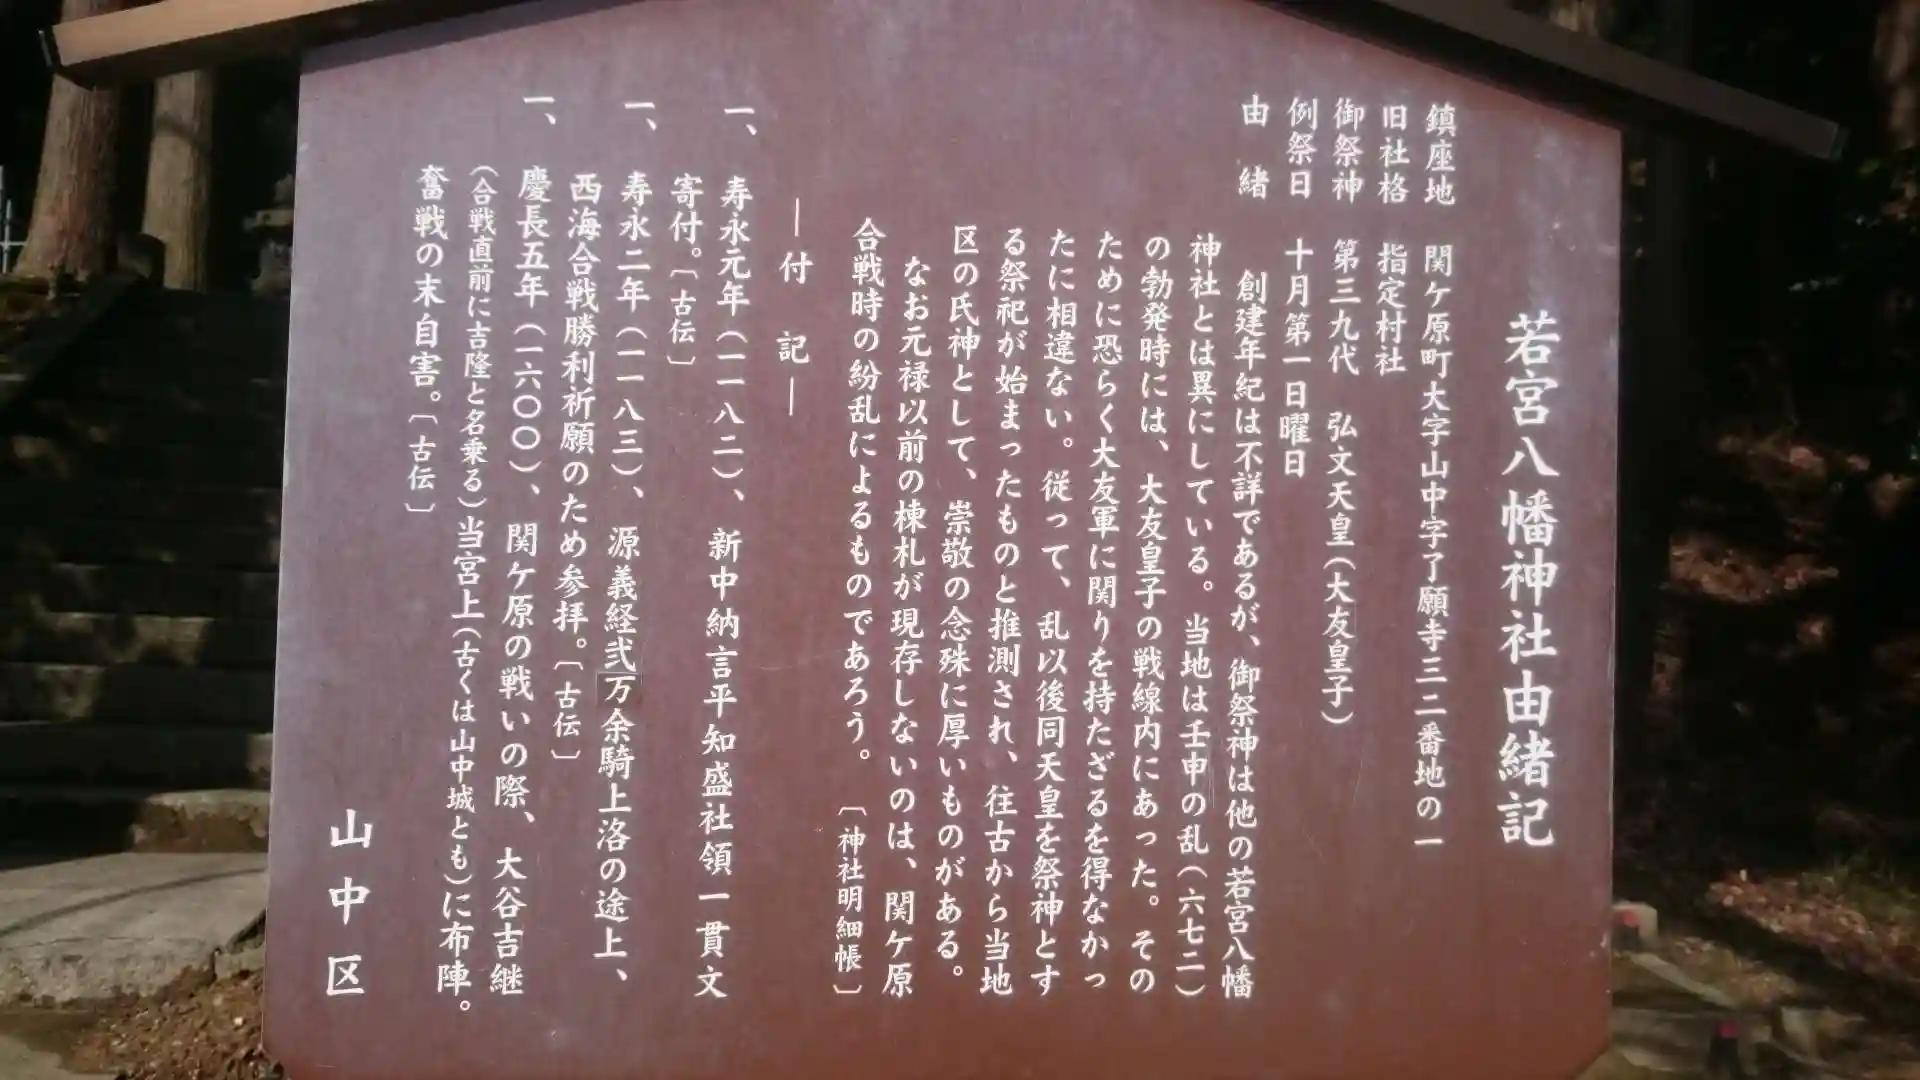 若宮八幡神社由緒記
鎮座地 関ケ原町大字山中字了願寺三二番地の一
旧社格 指定村社
御祭神 第三九代 弘文天皇(大友皇子)
例祭日 十月第一日曜日
由緒 創建年紀は不詳であるが、御祭神は他の若宮八幡
神社とは異にしている。当地は壬申の乱(六七二)
の勃発時には、大友皇子の戦線内にあった。その
ために恐らく大友軍に関りを持たざるを得なかっ
たに相違ない。従って、乱以後同天皇を祭神とす
る祭祀が始まったものと推測され、往古から当地
区の氏神として、崇敬の念殊に厚いものがある。
なお元禄以前の棟札が現存しないのは、関ケ原
合戦時の紛乱によるものであろう。〔神社明細帳〕
―付記―
一、寿永元年(一一八二)、新中納言平知盛社領一貫文
寄付。〔古伝〕
一、寿永二年(一一八三)、源義経弐万余騎上洛の途上、
西海合戦勝利祈願のため参拝。〔古伝〕
一、慶長五年(一六〇〇)、関ケ原の戦いの際、大谷吉継
(合戦直前に吉隆と名乗る)当宮上(古くは山中城とも)に布陣。
奮戦の末自害。〔古伝〕
山中区